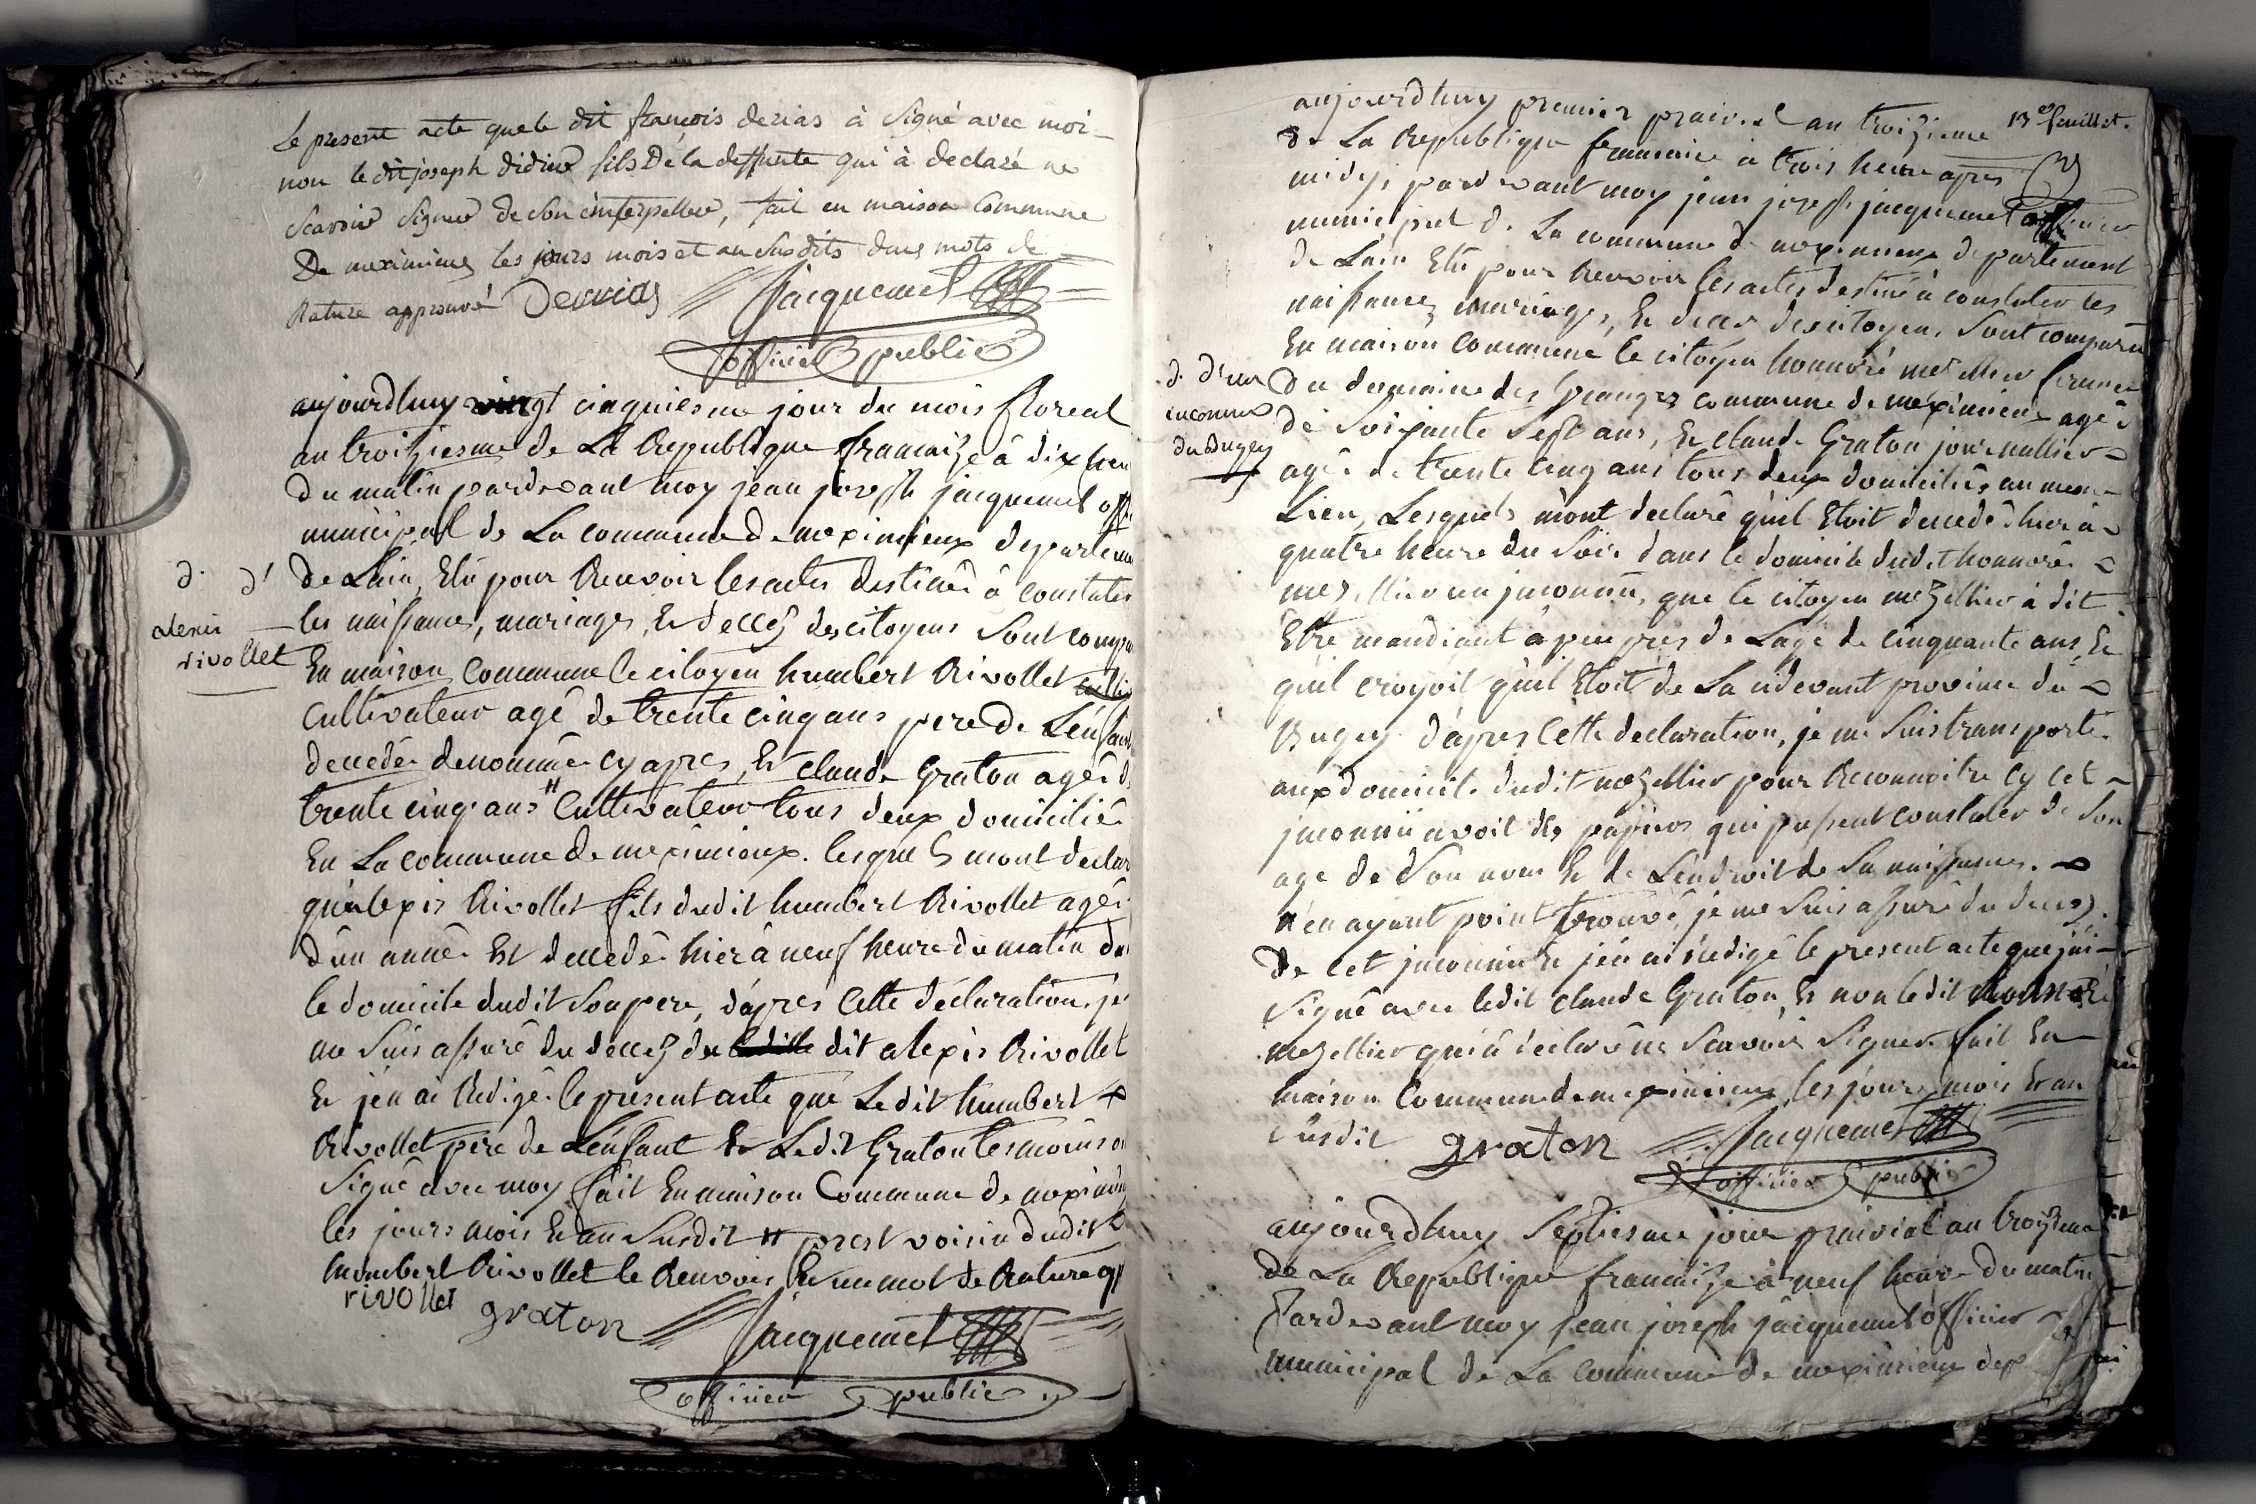 Le present acte que le dit françois derias à Signé avec moi
non le dit joseph didier fils De la deffunte qui à declaré ne
Scavoir Signer de son interpeller, fait en maison Commune
De meximieux les jours mois et an Susdits deux mots de
Rature approuvé Derrias Jacquemet
officier public
aujourdhuy vingt cinquiesme jour du mois floreal
an troiziesme de La Republique francaize â dix heu
du matin pardevant moy jean joseph jacquemet offi
municipal de La commune de meximieux departeme
d. d' de Lain, Elû pour Recevoir les actes destinês â constater
alexis les naissances, mariages, Et decez des citoyens Sont compa
rivollet En maison Commune le citoyen humbert Rivollet
Cultivateur agê de trente cinq ans pere de Lénfant
decedée denommée cy apres, Et claude Graton agée d
trente cinq ans # Cultivateur tous deux domiciliê
En La commune de meximieux. lesquels mont declar
quâlexis Rivollet fils dudit humbert Rivollet agée
dûn année Est decedée hier â neuf heure du matin da
le domicile dudit Son pere, dâpres Cette déclaration, je
me Suis assurê du decez du dit alexis Rivollet
Et jén ai Redigée le present acte que Le dit humbert
Rivollet pere de Lénfant Et Ledit Graton tesmoins on
Signê avec moy fait En maison Commune de meximieu
les jours mois Et an Susdit # prest voisin dudit
humbert Rivollet le Renvois, Et un mot de Rature ap
rivollet graton Jacquemet
officier public
13e feuillet.
aujourdhuy premier prairial an troizieme
de La Republique francaise à trois heure apres
midy, pardevant moy jean joseph jacquemet officier
municipal de La commune de meximieux departement
de Lain Elû pour Recevoir les actes destiné à constater les
naissances mariages, Et decez des citoyens Sont comparu
En maison Commune le citoyen honnoré mezellier fermier
d. d'un du domaine des Granges commune de meximieux agée
inconnu de Soixante Sept ans, Et claude Graton journallier
du Bugey agée de trente cinq ans tous deux domiciliés au mem
Lieu, Lesquels m'ont declarê qu'il Etoit decedé hier à
quatre heure du Soir dans le domicile dudit honnoré
mezellier un jnconnu, que le citoyen mezellier à dit
Etre mandiant â peu pres de Lage de cinquante ans, Et
qu'il croyoit qu'il Etoit de La cidevant province du
Bugey dâpres Cette declaration, je me Suis transporté
aux domicile dudit mezellier pour Reconnoitre Cy cet
jnconnu avoit des papiers qui pussent constater de Son
age de Son nom Et de Lendroit de Sa naissance.
n'en ayant point trouvé, je me Suis assuré du decez
de cet jnconnu Et jén ai rédigé le present acte que jai
Signé avec ledit claude Graton, Et non ledit honnoré
mezellier qui à declaré ne Scavoir Signer fait En
maison Commune de meximieux les jours, mois Et an
Susdit graton Jacquemet
officier public
aujourdhuy Septiesme jour prairial an troizieme
de La Republique francaize â neuf heure du matin
Pardevant moy jean joseph jacquemet officier
municipal de La commune de meximieux dep